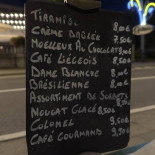 TIRAMISU 8,00€
CRÈME BRÛLÉE 7,50€
MOELLEUX AU CHOCOLAT 8,50€
CAFÉ LIÉGEOIS 8,50€
DAME BLANCHE 8,00€
BRÉSILIENNE 8,00€
ASSORTIMENT DE SORBETS
NOUGAT GLACÉ 8,50€
COLONEL 9,50€
CAFÉ GOURMAND 9,50€